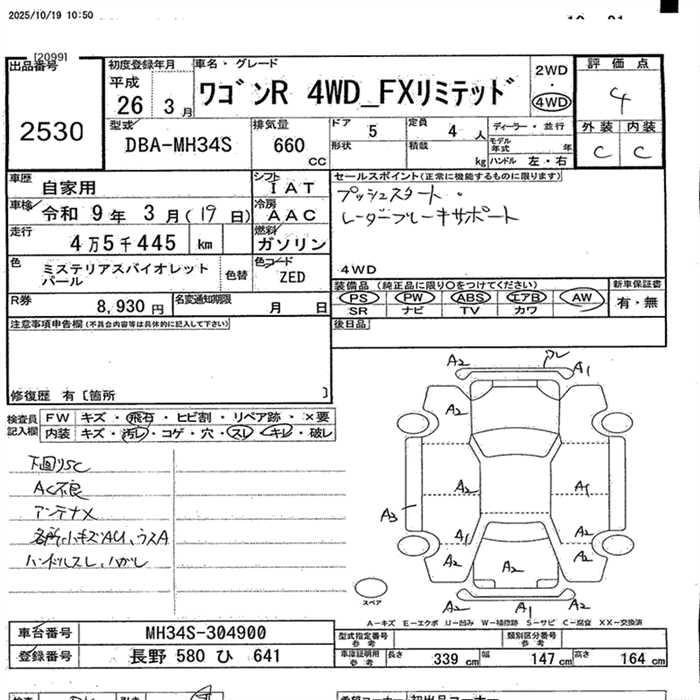 2025/10/19 10:50
[2099]
出品番号
2530
初度登録年月
平成
26年 3月
車名・グレード
ワゴンR 4WD_FXリミテッド
2WD
・
4WD
評価点
4
外装 内装
C C
型式
DBA-MH34S
排気量
660
cc
ドア 5
形状
定員 4 人
積載 kg
ディーラー・並行
モデル年式 年
ハンドル 左・右
車歴 自家用
シフト IAT
車検 令和 9年 3月(19日)
冷房 AAC
走行 4万5千445 km
燃料 ガソリン
色 ミステリアスバイオレットパール
色替
色コード ZED
R券 8,930円
名変通知期限 月 日
セールスポイント(正常に機能するものに限ります)
プッシュスタート・
レーダーブレーキサポート
4WD
装備品(純正品に限り〇をつけてください)
PS PW ABS エアB AW
SR ナビ TV カワ
新車保証書
有・無
注意事項申告欄(不具合内容等は具体的に記入して下さい)
後日品
修復歴 有[箇所 ]
検査員記入欄
FW キズ・飛石・ヒビ割・リペア跡・×要
内装 キズ・汚レ・コゲ・穴・スレ・キレ・破レ
下回りSC
AC不良
アンテナX
各所小キズAU、うスA
ハンドルスレ、ハガレ
A2 A1
A2
A2 A1
A3
A1 A2
A2 A2
A2 A2
スペア
A-キズ E-エクボ U-凹み W-補修跡 S-サビ C-腐食 XX-交換済
車台番号 MH34S-304900
登録番号 長野 580 ひ 641
型式指定番号 参考
類別区分番号 参考
車庫証明用 参考
長さ 339 cm
幅 147 cm
高さ 164 cm